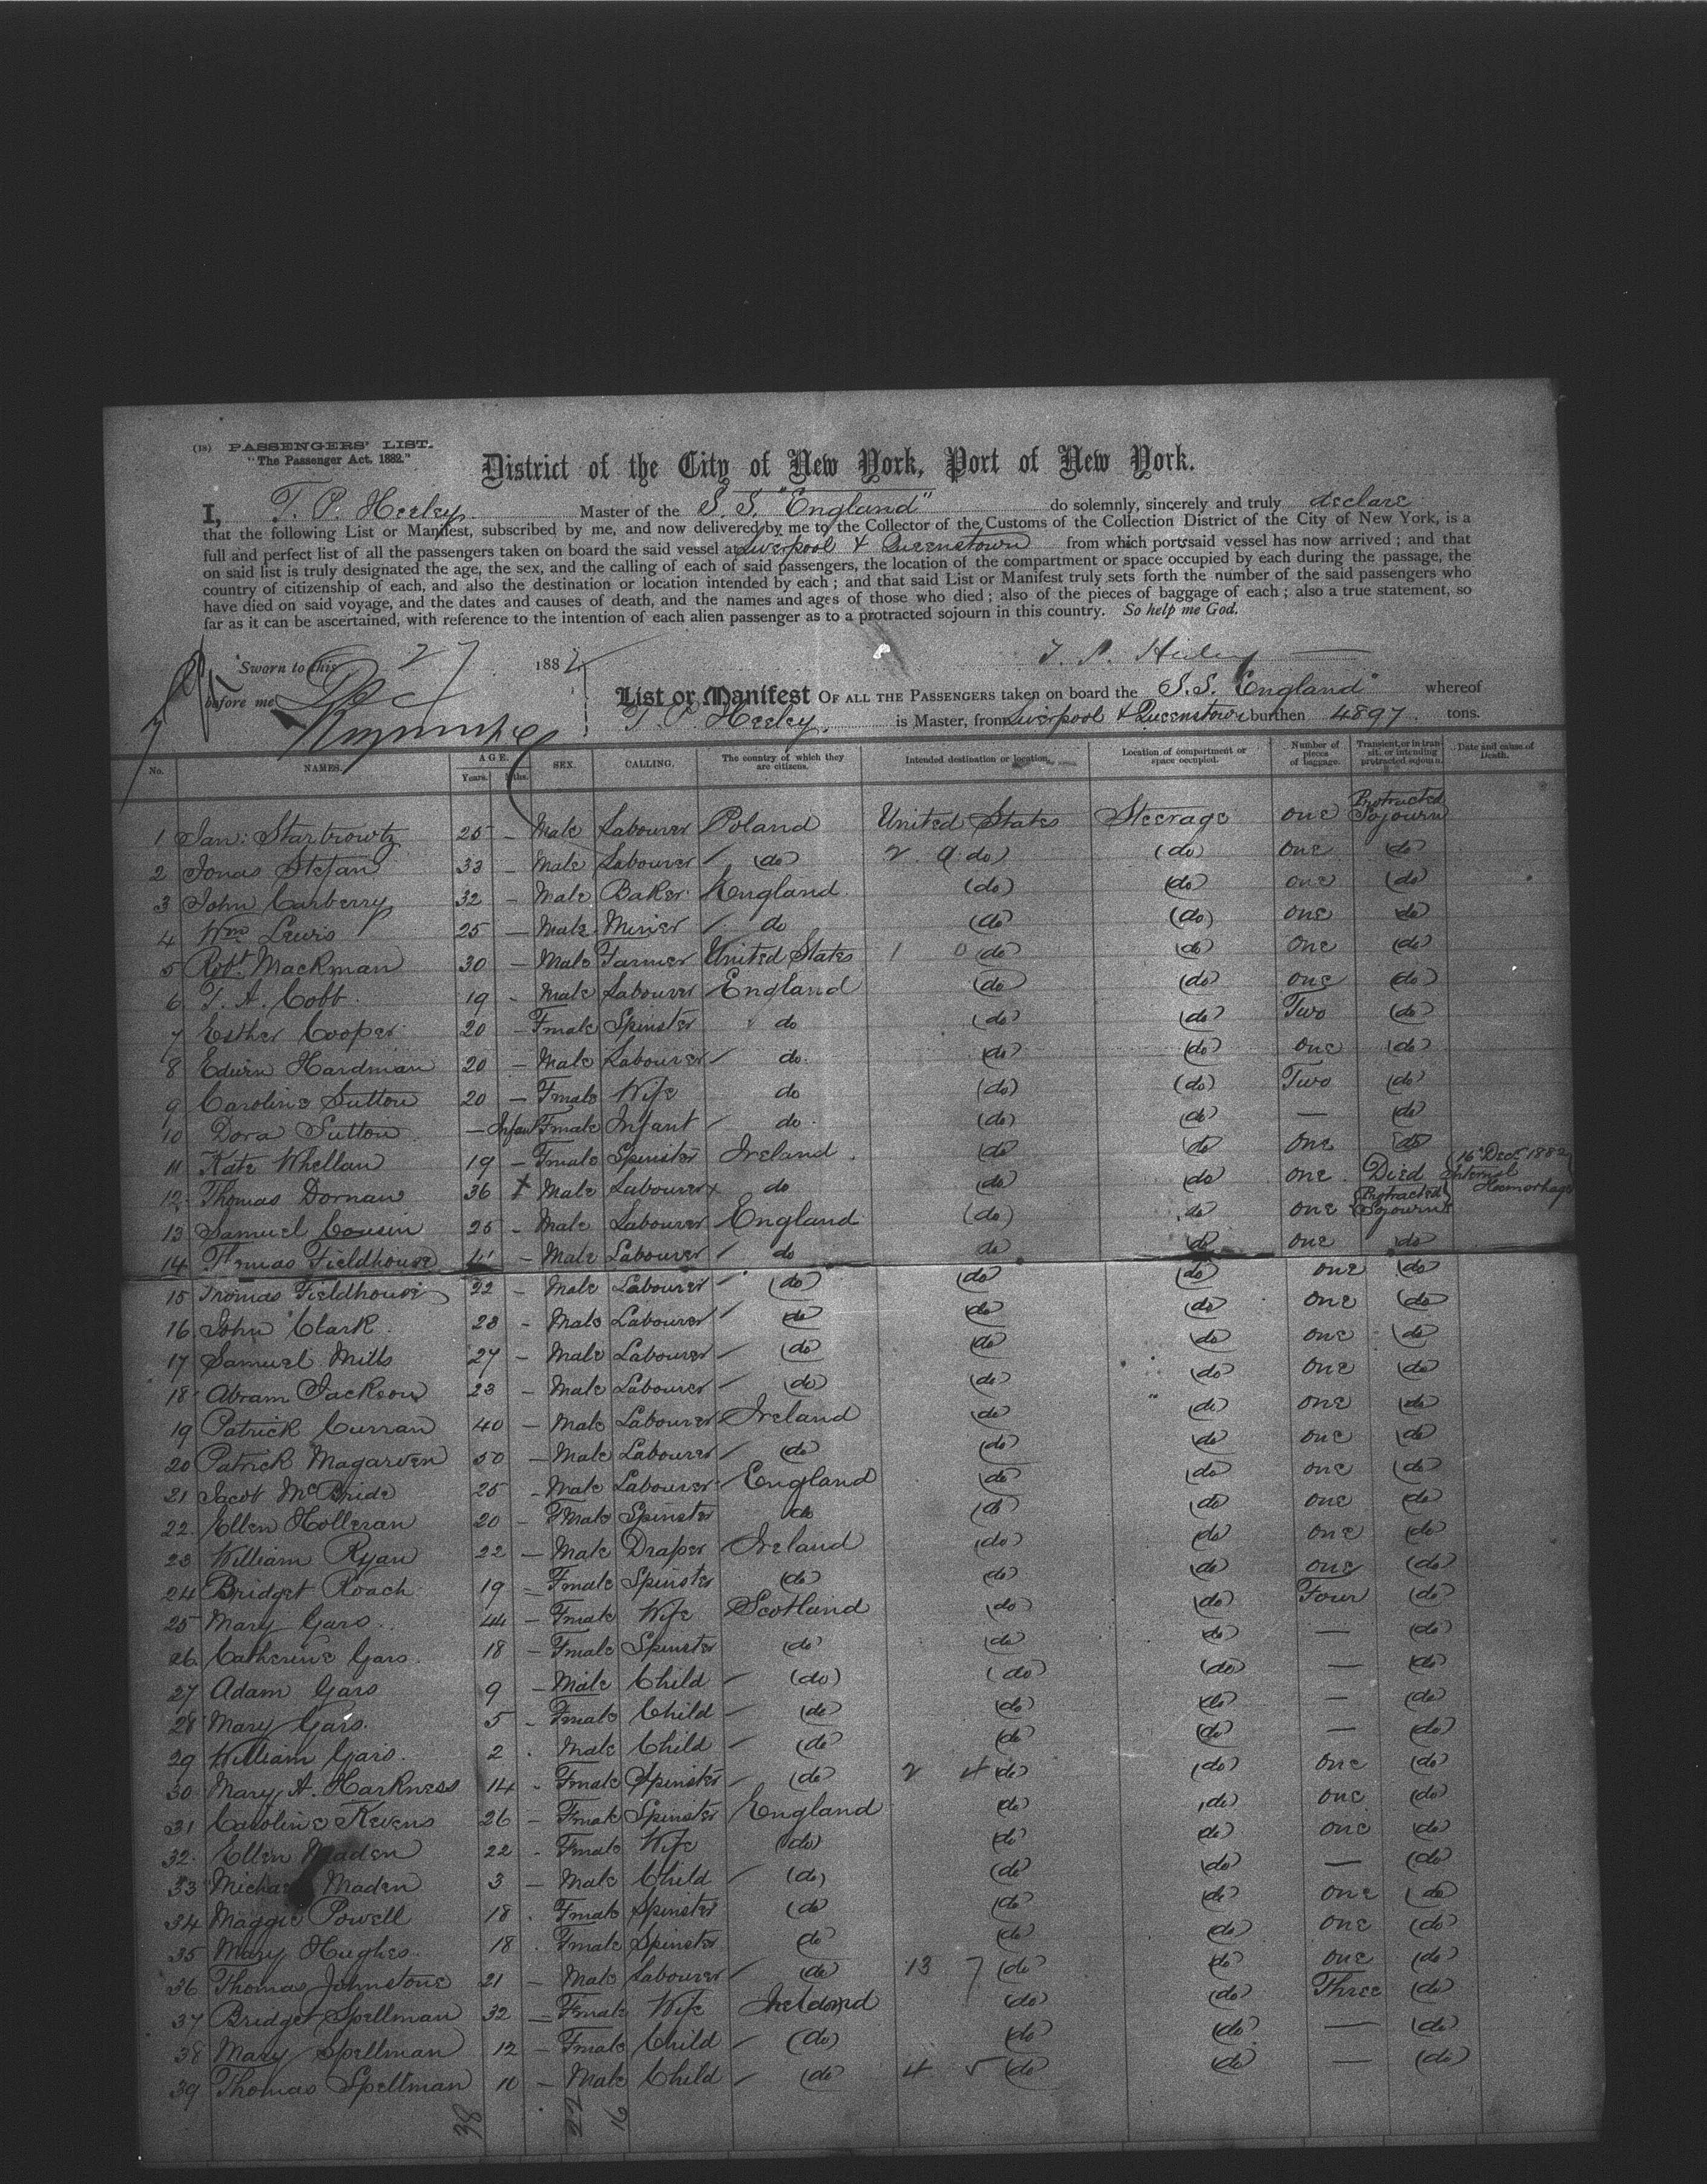 (18) PASSENGERS' LIST.
"The Passenger Act, 1882."
District of the City of New York, Port of New York.
I, T. P. Heeley Master of the S.S. "England" do solemnly, sincerely and truly declare
that the following List or Manifest, subscribed by me, and now delivered by me to the Collector of the Customs of the Collection District of the City of New York, is a
full and perfect list of all the passengers taken on board the said vessel at Liverpool & Queenstown from which ports said vessel has now arrived; and that
on said list is truly designated the age, the sex, and the calling of each of said passengers, the location of the compartment or space occupied by each during the passage, the
country of citizenship of each, and also the destination or location intended by each; and that said List or Manifest truly sets forth the number of the said passengers who
have died on said voyage, and the dates and causes of death, and the names and ages of those who died; also of the pieces of baggage of each; also a true statement, so
far as it can be ascertained, with reference to the intention of each alien passenger as to a protracted sojourn in this country. So help me God.
Sworn to this 27 1882 T. P. Heeley
before me Dec
List or Manifest OF ALL THE PASSENGERS taken on board the S.S. "England" whereof
T. P. Heeley is Master, from Liverpool & Queenstown burthen 4897 tons.
No. NAMES. AGE. Years. Mths. SEX. CALLING. The country of which they are citizens. Intended destination or location. Location of compartment or space occupied. Number of pieces of baggage. Transient, or in transit, or intending protracted sojourn. Date and cause of Death.
1 Jan: Starbrowtz 25 – Male Labourer Poland United States Steerage one Protracted Sojourn
2 Jonas Stefan 33 – Male Labourer (do) 2 9 (do) (do) one (do)
3 John Carberry 32 – Male Baker England (do) (do) one (do)
4 Wm Lewis 25 – Male Miner do (do) (do) one do
5 Robt. Mackman 30 – Male Farmer United States 1 0 (do) (do) one (do)
6 T. A. Cobb 19 – Male Labourer England (do) (do) one (do)
7 Esther Cooper 20 – Fmale Spinster do (do) (do) Two (do)
8 Edwin Hardman 20 – Male Labourer do (do) (do) one (do)
9 Caroline Sutton 20 – Fmale Wife do (do) (do) Two (do)
10 Dora Sutton – Infant Fmale Infant do (do) (do) — (do)
11 Kate Whellan 19 – Fmale Spinster Ireland (do) (do) one (do)
12 Thomas Dornan 36 X Male Labourer do (do) (do) one Died 16 Decr 1882 Internal Hœmorhage
13 Samuel Cousin 25 – Male Labourer England (do) do one Protracted Sojourn
14 Thomas Fieldhouse Male Labourer do do do one do
15 Thomas Fieldhouse 22 – Male Labourer (do) (do) (do) one (do)
16 John Clark 28 – Male Labourer do (do) (do) one (do)
17 Samuel Mills 27 – Male Labourer (do) (do) (do) one (do)
18 Abram Jackson 23 – Male Labourer (do) (do) (do) one (do)
19 Patrick Curran 40 – Male Labourer Ireland (do) (do) one (do)
20 Patrick Magarven 50 – Male Labourer (do) (do) (do) one (do)
21 Jacob McBride 25 – Male Labourer England (do) (do) one (do)
22 Ellen Holleran 20 – Fmale Spinster do (do) (do) one (do)
23 William Ryan 22 – Male Draper Ireland (do) (do) one (do)
24 Bridget Roach 19 – Fmale Spinster (do) (do) (do) one (do)
25 Mary Gars 44 – Fmale Wife Scotland (do) (do) Four (do)
26 Catherine Gars 18 – Fmale Spinster (do) (do) (do) — (do)
27 Adam Gars 9 – Male Child (do) (do) (do) — (do)
28 Mary Gars 5 – Fmale Child (do) (do) (do) — (do)
29 William Gars 2 – Male Child (do) (do) (do) — (do)
30 Mary A. Harkness 14 – Fmale Spinster (do) 2 4 (do) (do) one (do)
31 Caroline Kevens 26 – Fmale Spinster England (do) (do) one (do)
32 Ellen Maden 22 – Fmale Wife (do) (do) (do) one (do)
33 Michael Maden 3 – Male Child (do) (do) (do) — (do)
34 Maggie Powell 18 – Fmale Spinster (do) (do) (do) one (do)
35 Mary Hughes 18 – Fmale Spinster (do) (do) (do) one (do)
36 Thomas Johnstone 21 – Male Labourer (do) 13 7 (do) (do) one (do)
37 Bridget Spellman 32 – Fmale Wife Ireland (do) (do) Three (do)
38 Mary Spellman 12 – Fmale Child (do) (do) (do) — (do)
39 Thomas Spellman 10 – Male Child (do) 4 5 (do) (do) — (do)
38